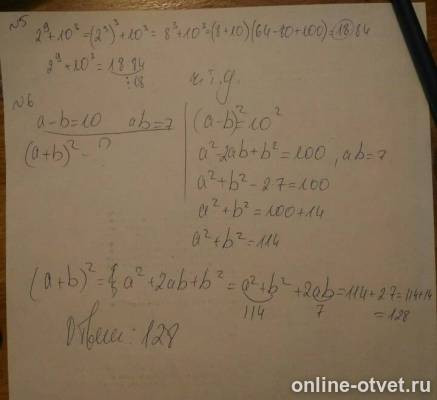 №5
2⁹+10³=(2³)³+10³=8³+10³=(8+10)(64-80+100)=18·84
2⁹+10³=18·84
:18
ч.т.д.
№6
a-b=10 ab=7
(a+b)²-?
(a-b)²=10²
a²-2ab+b²=100, ab=7
a²+b²-2·7=100
a²+b²=100+14
a²+b²=114
(a+b)²= a²+2ab+b²=a²+b²+2ab=114+2·7=114+14
114 7 =128
Ответ: 128
online-otvet.ru